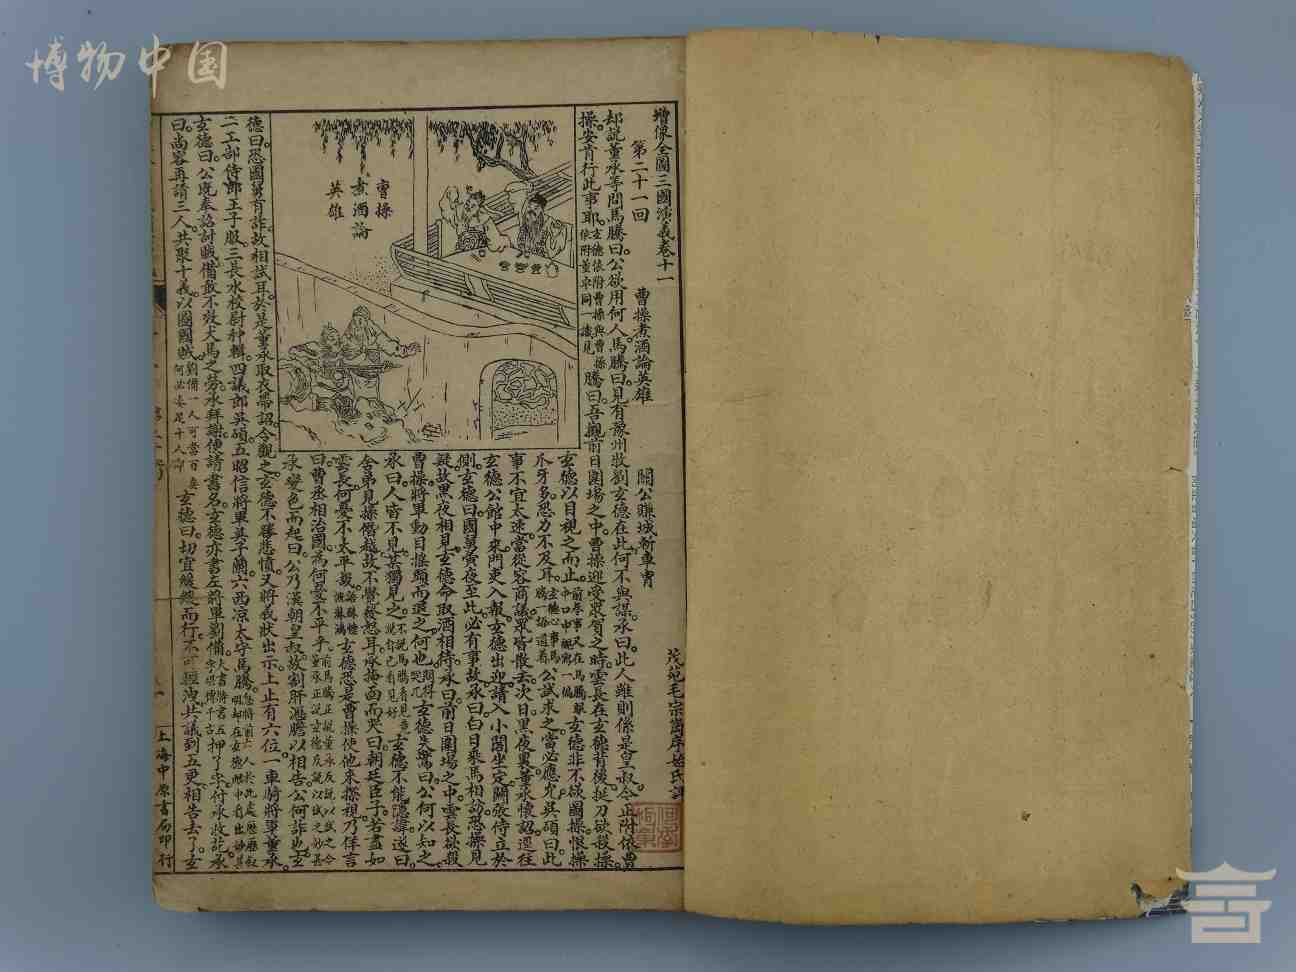 博物中国
增像全圖三國演義卷十一 茂苑毛宗崗序始氏評
第二十一回 曹操煮酒論英雄 關公賺城斬車冑
却說董承等問馬騰曰。公欲用何人。馬騰曰。見有豫州牧劉玄德在此。何不與謀。承曰。此人雖則係是皇叔。今正附依曹
操。安肯行此事耶。玄德依附曹操與曹操依附董卓同一識見騰曰。吾觀前日圍場之中。曹操迎受衆賀之時。雲長在玄德背後。挺刀欲殺操。
玄德以目視之而止。前年事又在馬騰口中補寫一遍玄德非不欲圖操。恨操
爪牙多。恐力不及耳。玄德心事馬騰一語道着公試求之。當必應允。吳碩曰。此
事不宜太速。當從容商議。衆皆散去。次日黑夜裏。董承懷詔。逕往
玄德公館中來。門吏入報。玄德出迎。請入小閣坐定。關張侍立於
側。玄德曰。國舅夤夜至此。必有事故。承曰。白日乘馬相訪。恐操見
疑。故黑夜相見。玄德命取酒相待。承曰。前日圍場之中。雲長欲殺
曹操。將軍動目搖頭而退之。何也。問得突兀玄德失驚曰。公何以知之。
承曰。人皆不見。某獨見之。不說馬騰看見說自己看見好玄德不能隱諱。遂曰。
舍弟見操僭越。故不覺發怒耳。承掩面而哭曰。朝廷臣子。若盡如
雲長。何憂不太平哉。玄德恐是曹操使他來探視。乃佯言
曰。曹丞相治國。為何憂不太平。
承變色而起曰。公乃漢朝皇叔。故剖肝瀝膽以相告。公何詐也。玄
曹操
煮酒論
英雄
德曰。恐國舅有詐。故相試耳。於是董承取衣帶詔。令觀之。玄德不勝悲憤。又將義狀出示。上止有六位。一車騎將軍董承。
二工部侍郎王子服。三長水校尉种輯。四議郎吳碩。五昭信將軍吳子蘭。六西凉太守馬騰。
玄德曰。公既奉詔討賊。備敢不效犬馬之勞。承拜謝。便請書名。玄德亦書左前軍劉備。押了字。付承收訖。承
曰。尚容再請三人。共聚十義。以圖國賊。劉備一人可當百矣何必湊足十人耶玄德曰。切宜緩緩而行。不可輕洩。共議到五更。相告去了。玄
上海中原書局印行